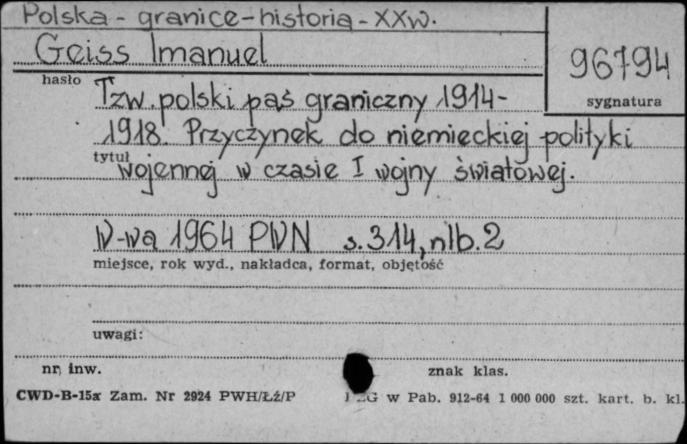 Polska - granice - historia - XXw.
Geiss Imanuel
96794
hasło
sygnatura
Tzw. polski pas graniczny 1914-
1918. Przyczynek do niemieckiej polityki
tytuł
wojennej w czasie I wojny światowej.
W-wa 1964 PWN s. 314, nlb. 2
miejsce, rok wyd., nakładca, format, objętość
uwagi:
nr inw.
znak klas.
CWD-B-15a Zam. Nr 2924 PWH/ŁŹ/P
w Pab. 912-64 1 000 000 szt. kart. b. kl.